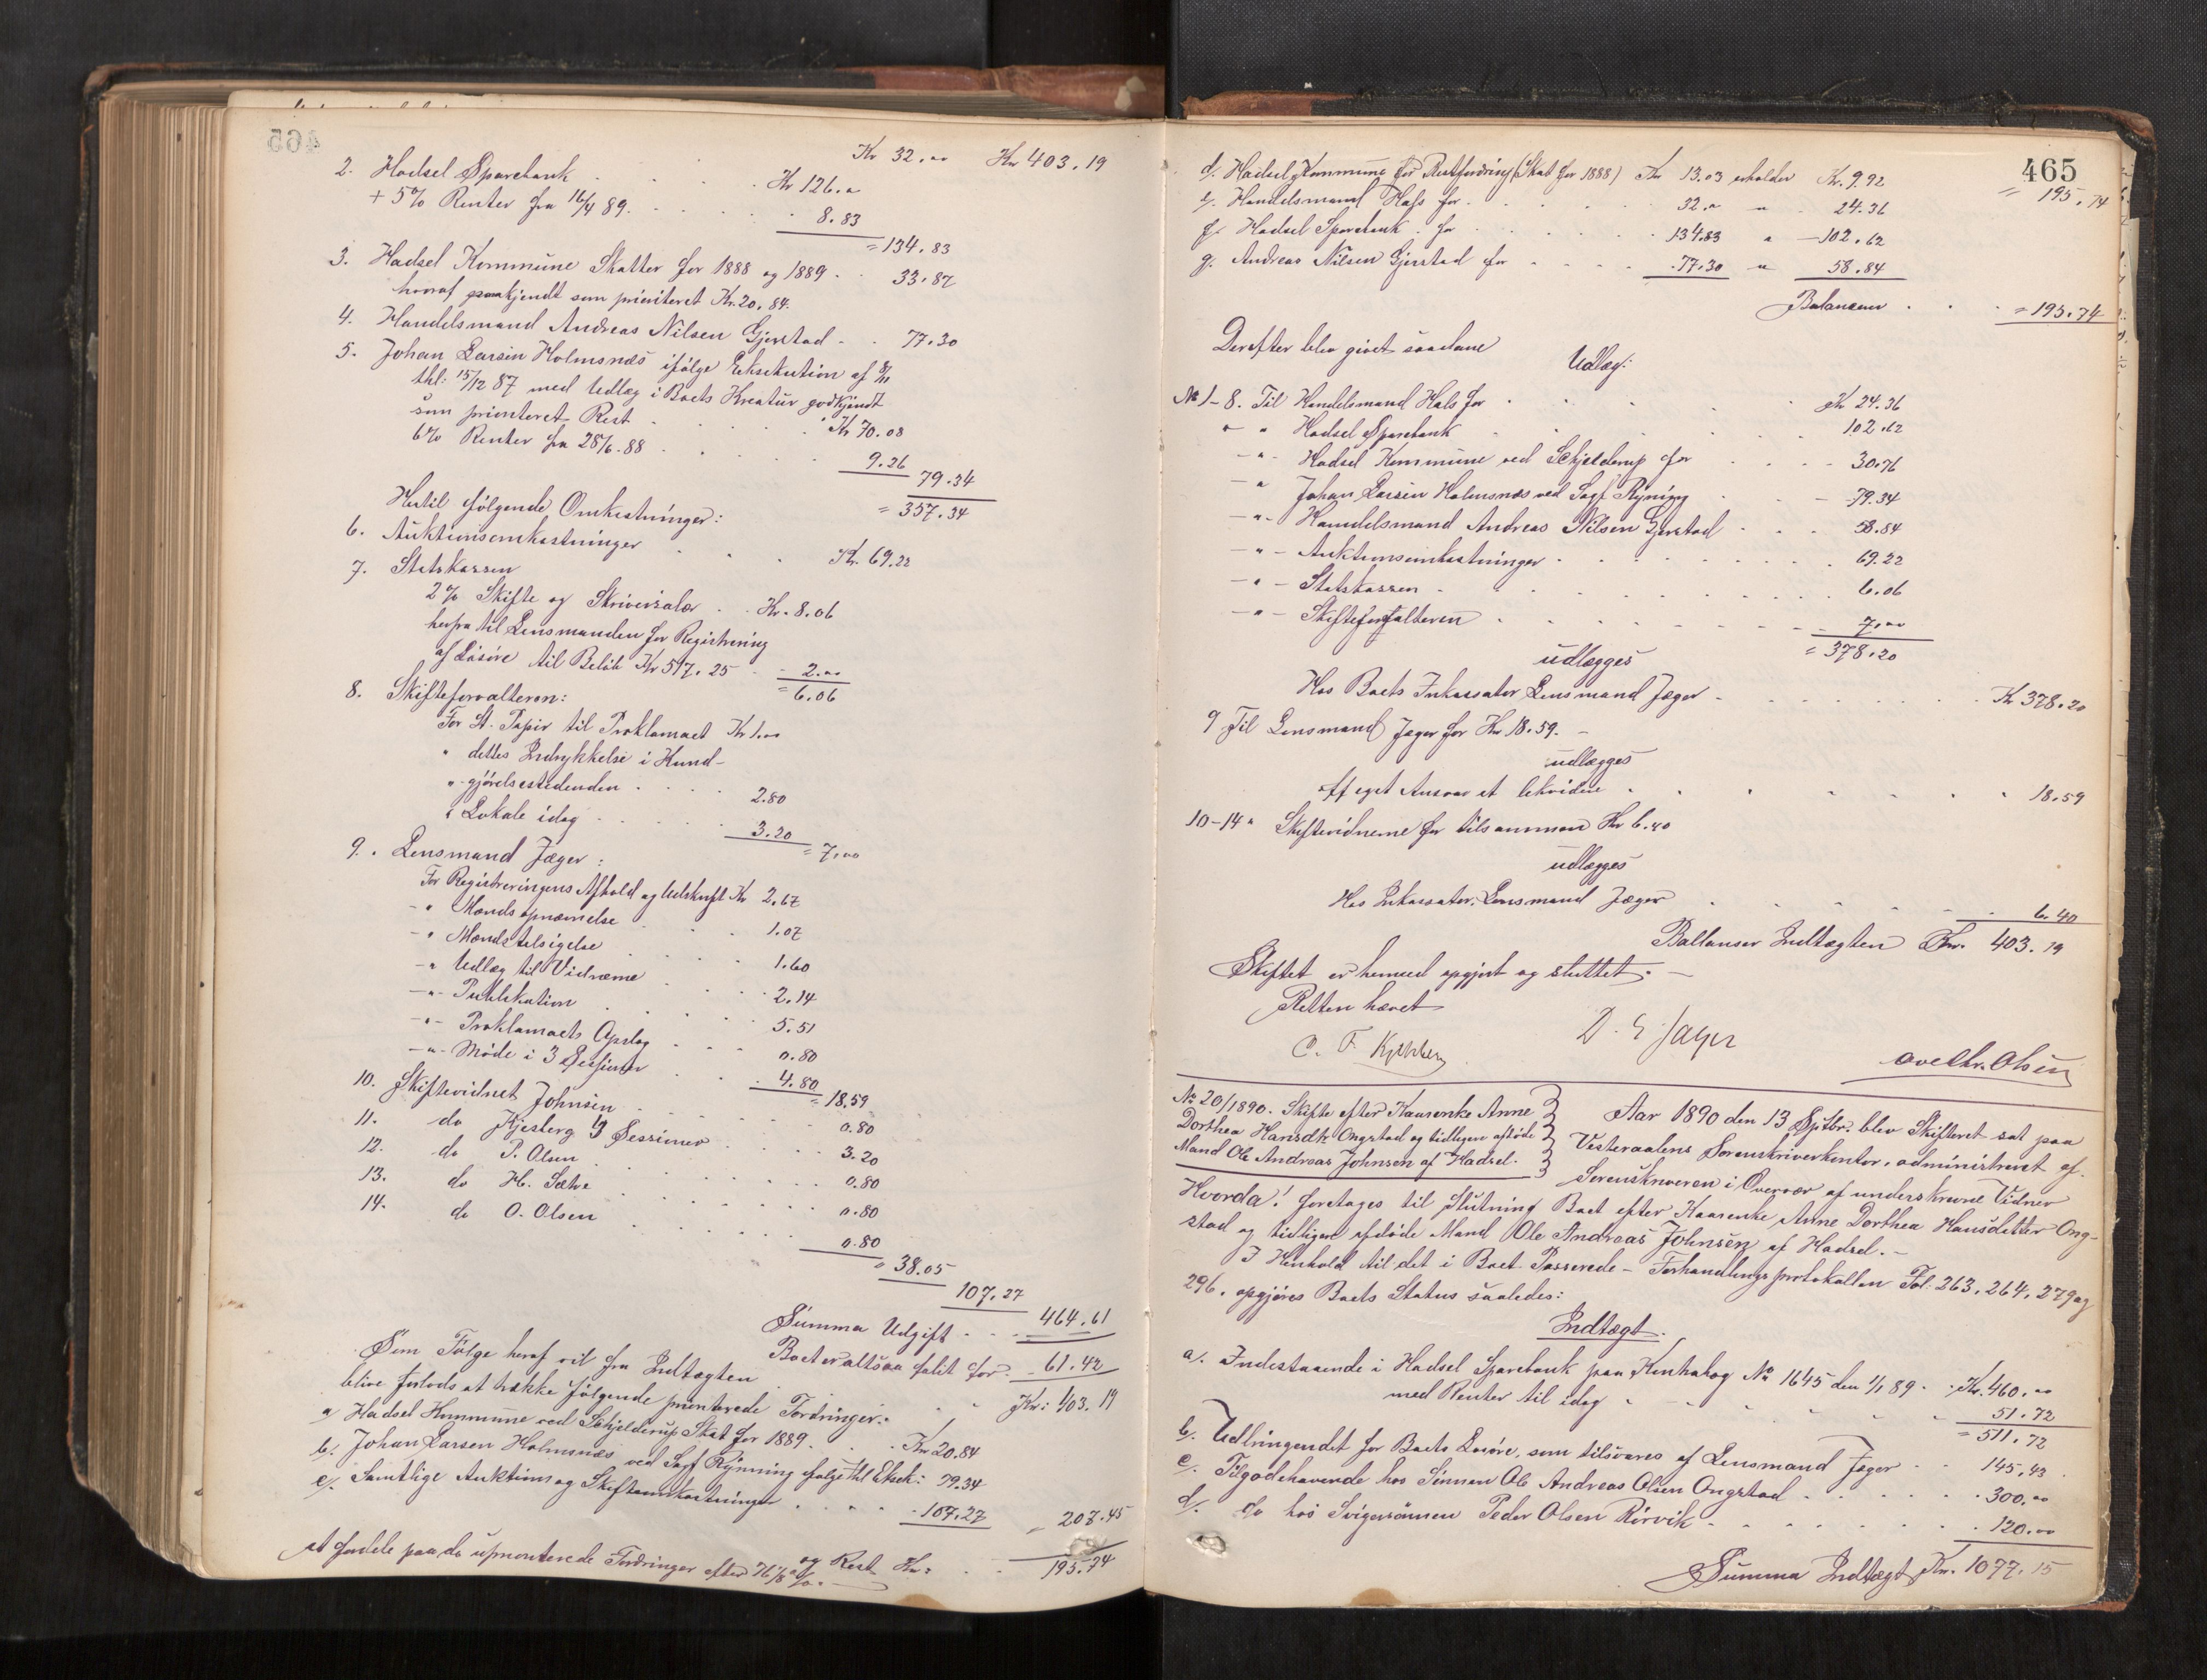 Kr 32.00 Kr 403.19
2. Hadsel Sparebank . . . . Kr 126.00
+ 5% Renter fra 16/4 89. . . . . . 8.83
= 134.83
3. Hadsel Kommune Skatter for 1888 og 1889 . . 33.87
hvoraf godkjendt som prioriteret Kr. 20.84.
4. Handelsmand Andreas Nilsen Gjerstad - . 77.30
5. Johan Larsen Holmsnæs ifølge Eksekution af 8/11
thl: 15/12 87 med Udlæg i Boets Kreatur godkjendt
som prioriteret Rest . . . . . Kr 70.08
6% Renter fra 28/6.88 . . . . . 9.26
79.34
= 357.34
Hertil følgende Omkostninger:
6. Auktionsomkostninger . . . Kr. 69.22
7. Statskassen
2% Skifte og Skriversalær . . Kr. 8.06
herfra til Lensmanden for Registrering
af Løsøre til Beløb Kr 517.25 - 2.00
= 6.06
8. Skifteforvalteren:
For St. Papir til Proklamaet Kr 1.00
" dettes Indrykkelse i Kund-
"-gjørelsestidenden . . . . 2.80
" Lokale idag . . . . . 3.20
= 7.00
9. Lensmand Jæger:
For Registreringens Afhold og Udskrift Kr 2.67
-" Mænds opnævnelse . . . 1.07
-" Mænds tilsigelse . . . 1.60
-" Udlæg til Vidnerne . . . 2.14
-"- Publikation . . . . 5.51
-"- Proklamaets Opslag . . . 0.80
-"- Møde i 3 Sessioner . . . 4.80
= 18.59
10. Skiftevidnet Johnsen . . . . 0.80
11. do Kjesberg 4 Sessioner . . . . 3.20
12. do P. Olsen . . . . . 0.80
13. do H. Sætre . . . . . 0.80
14. do O. Olsen . . . . . 0.80
= 38.05
107.27
Summa Udgift . . . 464.61
Boet er altsaa falit for . 61.42
Som Følge heraf vil fra Indtægten . . . Kr: 403.19
blive forlods at trække følgende prioriterede Fordringer:
a Hadsel Kommune ved Schjelderup Skat for 1889 . . . Kr 20.84
b. Johan Larsen Holmsnæs ved Sagf. Rynning ifølge thl Eksek: 79.34
c. Samtlige Auktions og Skifteomkostninger . . . . 107.27
= 207.45
og Rest Kr: . . . 195.74
at fordele paa de uprioriterede Fordringer efter 76 1/8 %.
465
d. Hadsel Kommune for Restfordring (Skat for 1888) Kr 13.03 erholder Kr. 9.92
= 195.74
e. Handelsmand Hals for . . . . . 32.00 " - 24.36
f. Hadsel Sparebank for . . . . . 134.83 " - 102.62
g. Andreas Nilsen Gjerstad for . . . . 77.30 " 58.84
Balancerer . . . = 195.74
Derefter blev givet saadane
Udlæg:
No 1-8. Til Handelsmand Hals for . . . . . Kr 24.36
" " Hadsel Sparebank . . . . . 102.62
-"- Hadsel Kommune ved Schjelderup for . . . . 30.76
-" Johan Larsen Holmsnæs ved Sagf. Rynning . . . 79.34
-"- Handelsmand Andreas Nilsen Gjerstad . . . 58.84
-"- Auktionsomkostninger . . . . . . . . 69.22
-"- Statskassen . . . . . . . . . . 6.06
-"- Skifteforvalteren . . . . . . . . 7.00
= 378.20
udlægges
Hos Boets Inkassator Lensmand Jæger . . . . . . . Kr 378.20
9 Til Lensmand Jæger for Kr 18.59. -
udlægges
Af eget Ansvar at likvidere . . . . . . . 18.59
10-14 " Skiftevidnerne for tilsammen Kr 6.40
udlægges
Hos Inkassator, Lensmand Jæger . . . . . . 6.40
Ballanser Indtægten Kr. 403.19
Skiftet er hermed opgjort og sluttet. -
Retten hævet
D. E. Jæger
Ove Chr. Olsen
No 20/1890. Skifte efter Kaarenke Anne
Dorthea Hansdtr Ongstad og tidligere afdøde
Mand Ole Andreas Johnsen af Hadsel.
Aar 1890 den 13 Sptbr. blev Skifteret sat paa
Vesteraalens Sorenskriverkontor, administreret af
Sorenskriveren i Overvær af underskrevne Vidner
Hvorda! foretages til Slutning Boet efter Kaarenke Anne Dorthea Hansdatter Ong-
stad og tidligere afdøde Mand Ole Andreas Johnsen af Hadsel. -
I Henhold til det i Boet Passerede - Forhandlings protokollen Fol: 263, 264, 279 og
296, opgjøres Boets Status saaledes:
Indtægt.
a. Indestaaende i Hadsel Sparebank paa Kontrabog No 1645 den 1/1 89 . . Kr. 460.00
med Renter til idag . . . . . . . . 51.72
= 511.72
b. Udbringendet for Boets Løsøre, som tilsvares af Lensmand Jæger . . 145.43
c. Tilgodehavende hos Sønnen Ole Andreas Olsen Ongstad . . . . . . 300.00
d. do hos Svigersønnen Peder Olsen Rørvik . . . . . . . 120.00
Summa Indtægt Kr. 1077.15